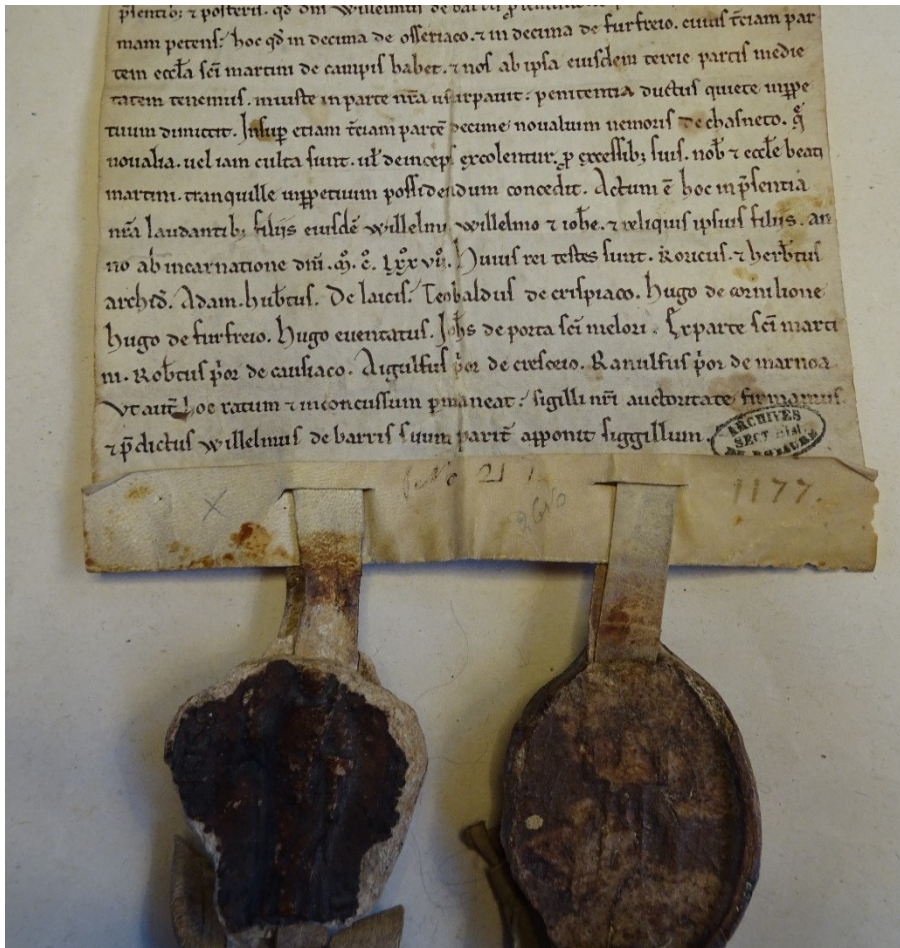 p̄sentib; ⁊ posteris. qd̄ dn̄s Willelmus de barris
mam petens; hoc qd̄ in decima de osseriaco. ⁊ in decima de furfreio. cuius t̄ciam par
tem eccl̄a sc̄i martini de campis habet. ⁊ nos ab ipsa eiusdem tercie partis medie
tatem tenemus. iniuste in parte nr̄a usurpauit; penitentia ductus quiete inppe
tuum dimittit. Insup etiam t̄ciam partē decime noualium nemoris de chasneto. q̊
noualia. uel iam culta sunt. ul̄ deinceps excolentur. p excessib; suis. nob̄ ⁊ eccl̄e beati
martini. tranquille inppetuum possidendum concedit. Actum ē hoc in p̄sentia
nr̄a laudantib; filiis eiusdē Willelmi Willelmo ⁊ ioh̄e. ⁊ reliquis ipsius filiis. an
no ab incarnatione dn̄i. M̊. C̊. Lxx vii̊. Huius rei testes sunt. Roricus. ⁊ herb̄tus
archid̄. Adam. hub̄tus. De laicis; Teobaldus de crispiaco. Hugo de cornilione
hugo de furfreio. Hugo euentatus. Joh̄s de porta sc̄i melori. Ex parte sc̄i marti
ni. Rob̄tus p̓or de cRanulfus p̓or de marnoa
Vt aut̄ hoc ratum ⁊ inconcussum pmaneat; sigilli nr̄i auctoritate firmamus
⁊ p̄dictus Willelmus de barris suum parit̄ apponit siggillum.
ARCHIVES
No 21
1177.